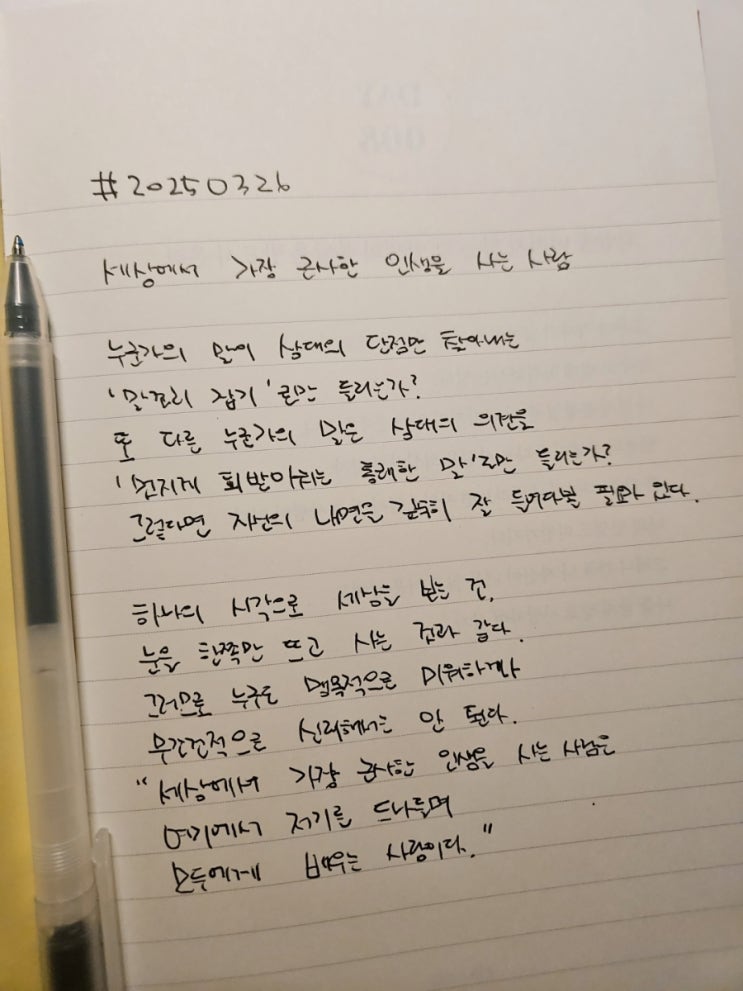 DAY
008
#20250326
세상에서 가장 근사한 인생을 사는 사람
누군가의 말이 상대의 단점만 찾아내는
'말꼬리 잡기'로만 들리는가?
또 다른 누군가의 말은 상대의 의견을
'멋지게 되받아치는 통쾌한 말'로만 들리는가?
그렇다면 자신의 내면을 깊숙히 잘 들여다볼 필요가 있다.
하나의 시각으로 세상을 보는 건,
눈을 한쪽만 뜨고 사는 것과 같다.
그러므로 누구도 맹목적으로 미워하거나
무조건적으로 신뢰해서는 안 된다.
"세상에서 가장 근사한 인생을 사는 사람은
여기에서 저기를 드나들며
모두에게 배우는 사람이다."